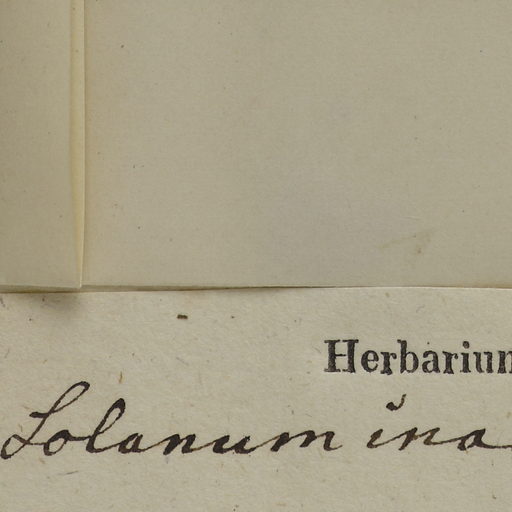 Herbarium
Solanum ina